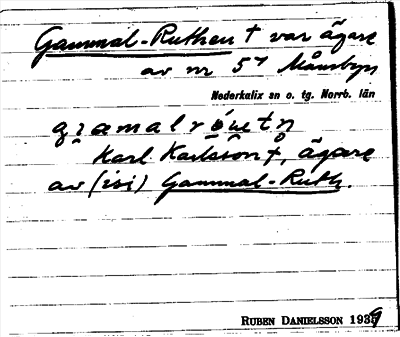 Gammal-Ruthen † var ägare
av nr 57 Månsbyn
Nederkalix sn o. tg. Norrb. län
Karl Karlsson †, ägare
av (isi) Gammal-Ruth.
RUBEN DANIELSSON 1939